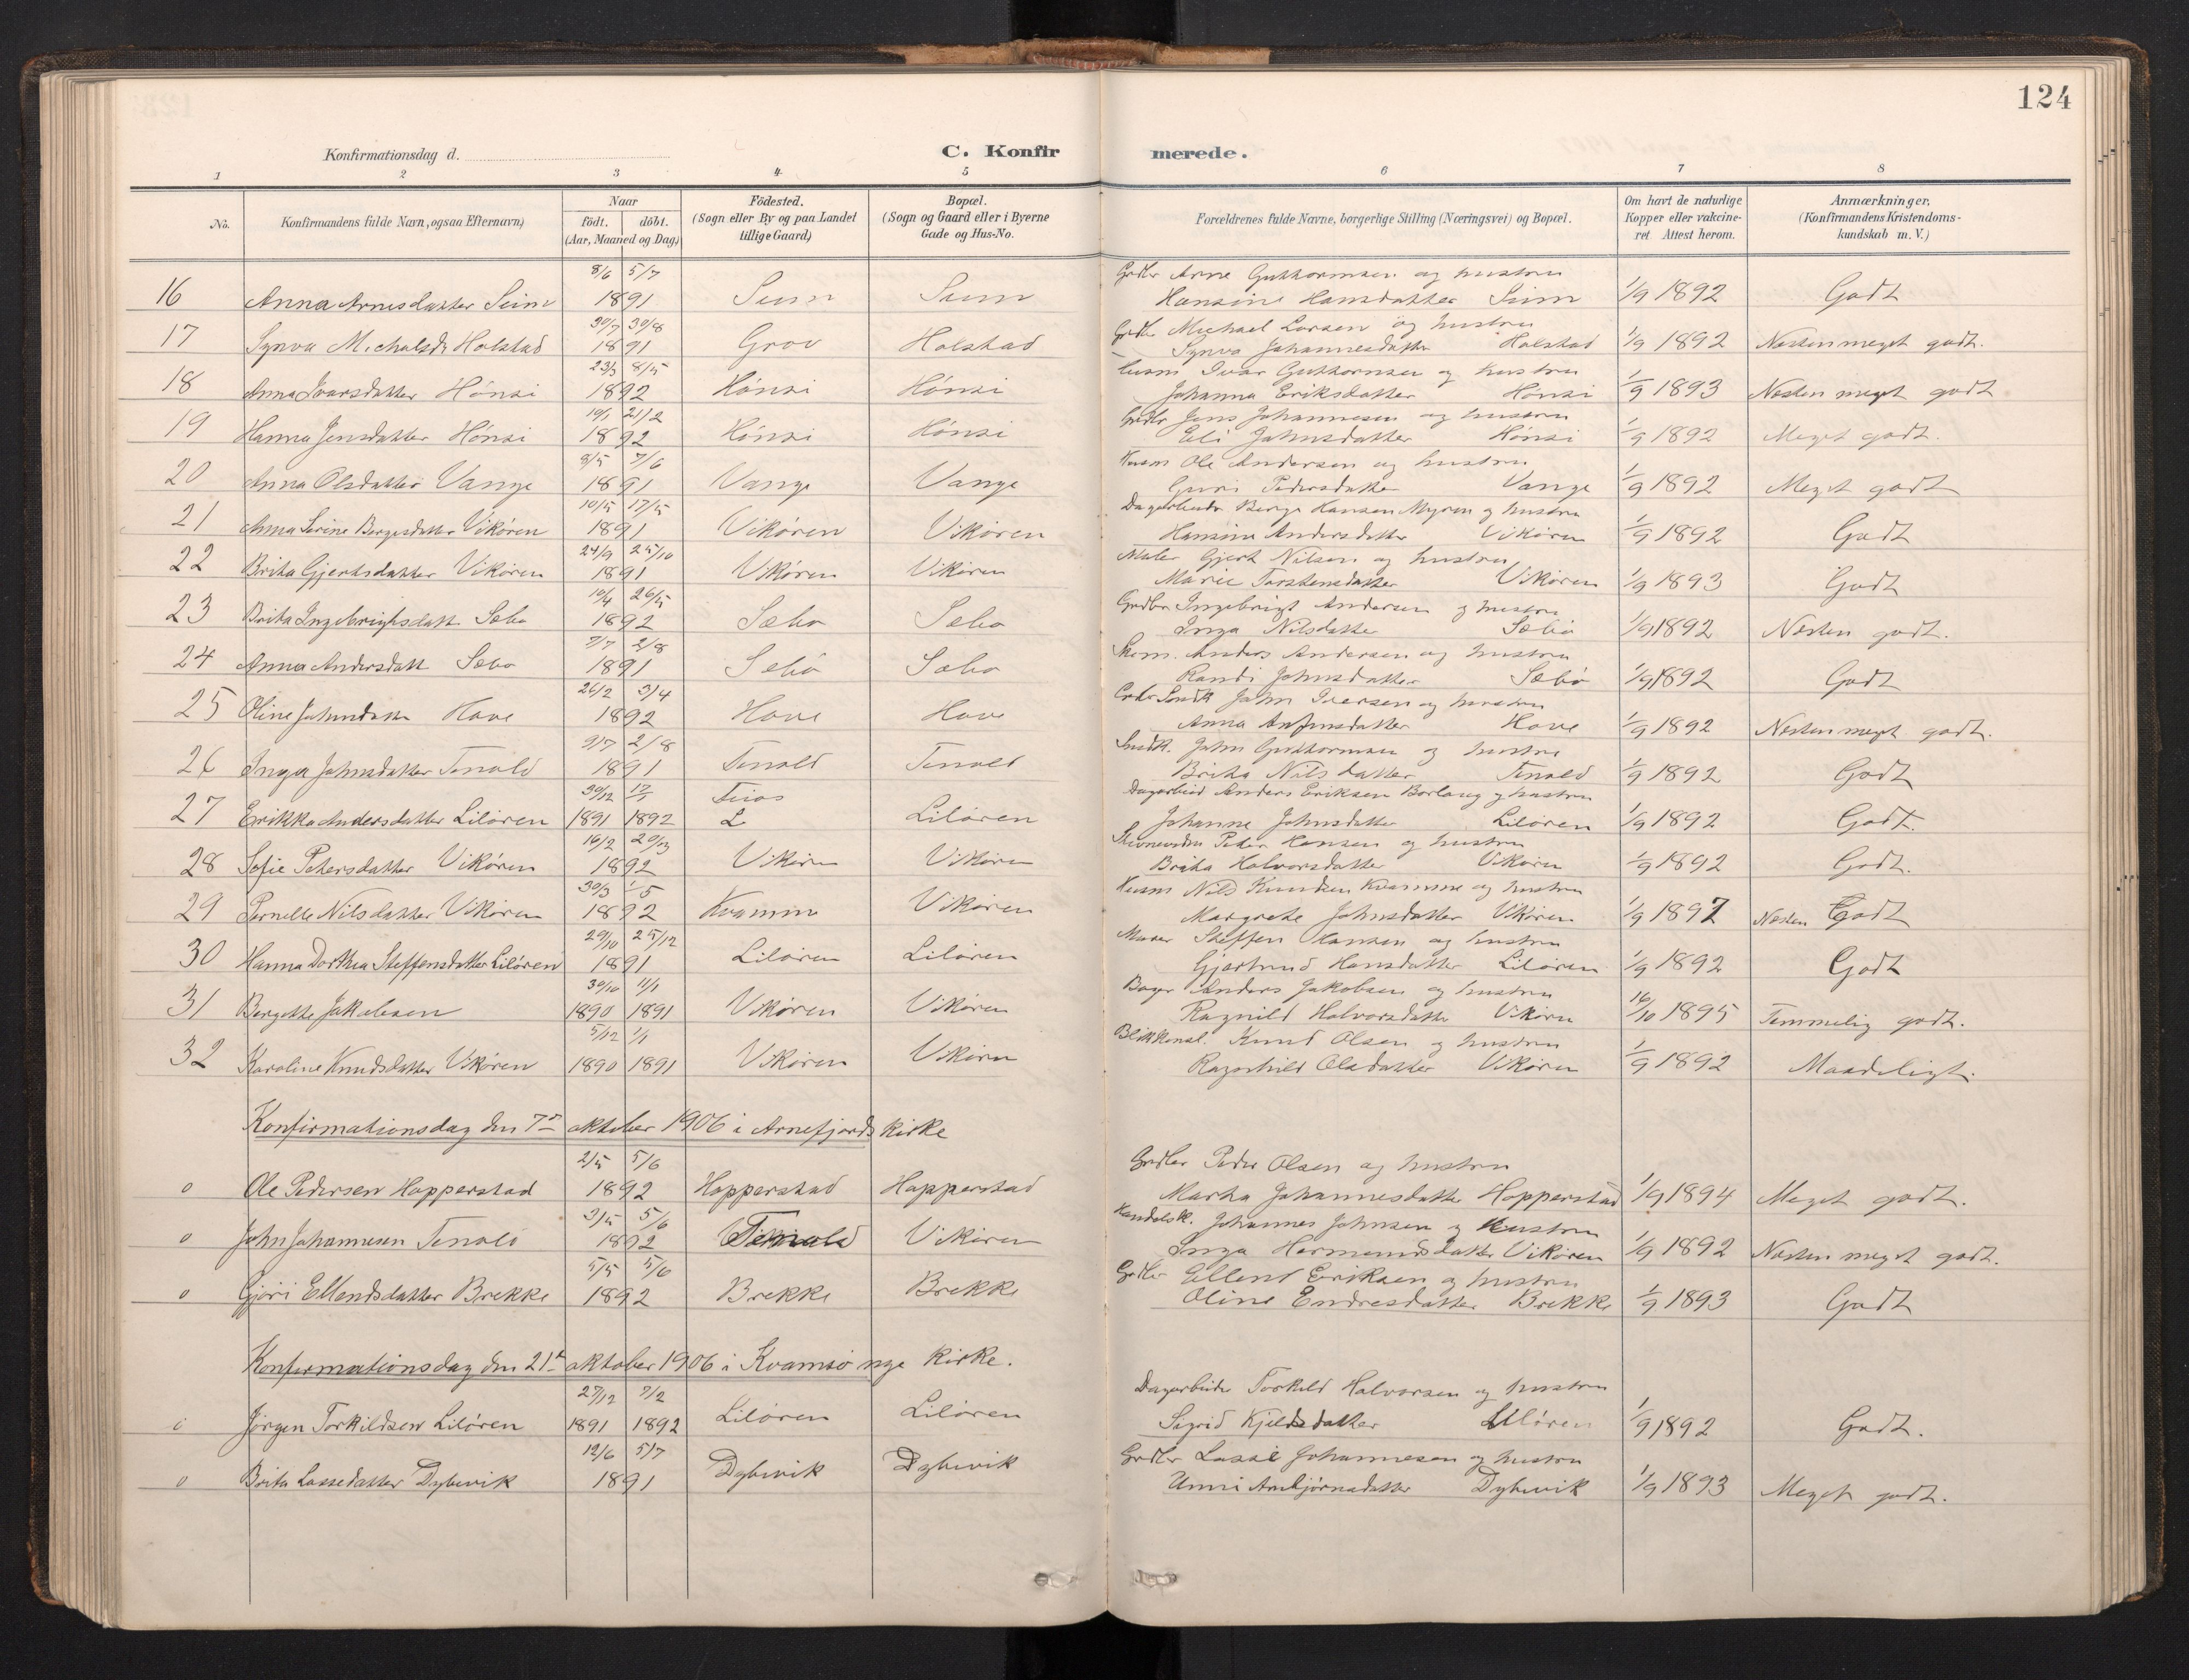 124
Konfirmationsdag d.
C. Konfirmerede.
1 2 3 4 5 6 7 8
No. Konfirmandens fulde Navn, ogsaa Efternavn) Naar födt. döbt. (Aar, Maaned og Dag.) Födested. (Sogn eller By og paa Landet tillige Gaard) Bopæl. (Sogn og Gaard eller i Byerne Gade og Hus-No. Forældrenes fulde Navne, borgerlige Stilling (Næringsvei) og Bopæl. Om havt de naturlige Kopper eller vakcineret Attest herom. Anmærkninger, (Konfirmandens Kristendomskundskab m. V.)
8/6 5/7 Grdbr Arne Guttormsen og hustru
16 Anna Arnesdatter Seim 1891 Seim Seim Hansine Hansdatter Seim 1/9 1892 Godt
30/7 30/8 Grdbr Michael Larsen og hustru
17 Synva Michalsd. Holstad 1891 Grov Holstad Synva Johannesdatter Holstad 1/9 1892 Næsten meget godt.
23/3 8/5 Husm Ivar Guttormsen og hustru
18 Anna Ivarsdatter Hönsi 1892 Hönsi Hönsi Johanna Eriksdatter Hönsi 1/9 1893 Næsten meget godt
10/1 21/2 Grdbr Jens Johannesen og hustru
19 Hanna Jensdatter Hönsi 1892 Hönsi Hönsi Eli Johnsdatter Hönsi 1/9 1892 Meget godt.
8/5 7/6 Husm Ole Andersen og hustru
20 Anna Olsdatter Vange 1891 Vange Vange Guri Pedersdatter Vange 1/9 1892 Meget godt
10/5 17/5 Dagarbeider Berge Hansen Myren og hustru
21 Anna Serine Bergesdatter Vikören 1891 Vikören Vikören Hansine Andersdatter Vikören 1/9 1892 Godt
24/9 25/10 Maler Gjert Nilsen og hustru
22 Brita Gjertsdatter Vikören 1891 Vikören Vikören Marie Torstensdatter Vikören 1/9 1893 Godt
10/4 26/5 Grdbr Ingebrigt Andersen og hustru
23 Brita Ingebrigtsdatt. Sæbo 1892 Sæbo Sæbo Inga Nilsdatter Sæbö 1/9 1892 Næsten godt.
7/7 2/8 Skom. Anders Andersen og hustru
24 Anna Andersdatt Sæbo 1891 Sæbö Sæbo Randi Johnsdatter Sæbö 1/9 1892 Godt
26/2 3/4 John Iversen og hustru
25 Oline Johnsdatter Hove 1892 Hove Hove Anna Anfinsdatter Hove 1/9 1892 Næsten meget godt.
9/7 2/8 Snedk. John Guttormsen og hustru
26 Inga Johnsdatter Tenold 1891 Tenold Tenold Brita Nilsdatter Tenold 1/9 1892 Godt
30/12 17/1 Dagarbeid Anders Eriksen Borlaug og hustru
27 Erikka Andersdatter Lilören 1891 1892 L Lilören Johanne Johnsdatter Lilören 1/9 1892 Godt.
16/2 20/3 Peder Hansen og hustru
28 Sofie Petersdatter Vikören 1892 Vikören Vikören Brita Halvorsdatter Vikören 1/9 1892 Godt.
30/3 1/5 Husm Nils Knudsen Kvamme og hustru
29 Pernelle Nilsdatter Vikören 1892 Kvamme Vikören Margrete Johnsdatter Vikören 1/9 1897 Næsten Godt
29/10 25/12 Murer Steffen Hansen og hustru
30 Hanna Dorthea Steffensdatter Lilören 1891 Lilören Lilören Gjertrud Hansdatter Lilören 1/9 1892 Godt
30/10 11/1 Bager Anders Jakobsen og hustru
31 Bergitte Jakobsen 1890 1891 Vikören Vikören Ragnild Halvorsdatter Vikören 16/10 1895 Temmelig godt.
5/12 1/1 Blikkensl. Knud Olsen og hustru
32 Karoline Knudsdatter Vikören 1890 1891 Vikören Vikören Ragnhild Olsdatter Vikören 1/9 1892 Maadeligt.
Konfirmationsdag den 7de oktober 1906 i Arnefjords kirke
2/5 5/6 Grdbr Peder Olsen og hustru
0 Ole Pedersen Hopperstad 1892 Hopperstad Hopperstad Martha Johannesdatter Hopperstad 1/9 1894 Meget godt.
3/5 5/6 Handelsk. Johannes Johnsen og hustru
0 John Johannesen Tenold 1892 Tenold Vikören Inga Hermundsdatter Vikören 1/9 1892 Næsten meget godt.
5/5 5/6 Grdbr Ellend Eriksen og hustru
0 Gjöri Ellendsdatter Brekke 1892 Brekke Brekke Oline Endresdatter Brekke 1/9 1893 Godt
Konfirmationsdag den 21de oktober 1906 i Kvamsö nye kirke.
27/12 7/2 Dagarbeider Torkild Halvorsen og hustru
0 Jörgen Torkildsen Lilören 1891 1892 Lilören Lilören Sigrid Kjeldsdatter Lilören 1/9 1892 Godt.
12/6 5/7 Grdbr Lasse Johannesen og hustru
0 Brita Lassedatter Dybevik 1891 Dybevik Dybevik Unni Arnbjörnsdatter Dybevik 1/9 1893 Meget godt.